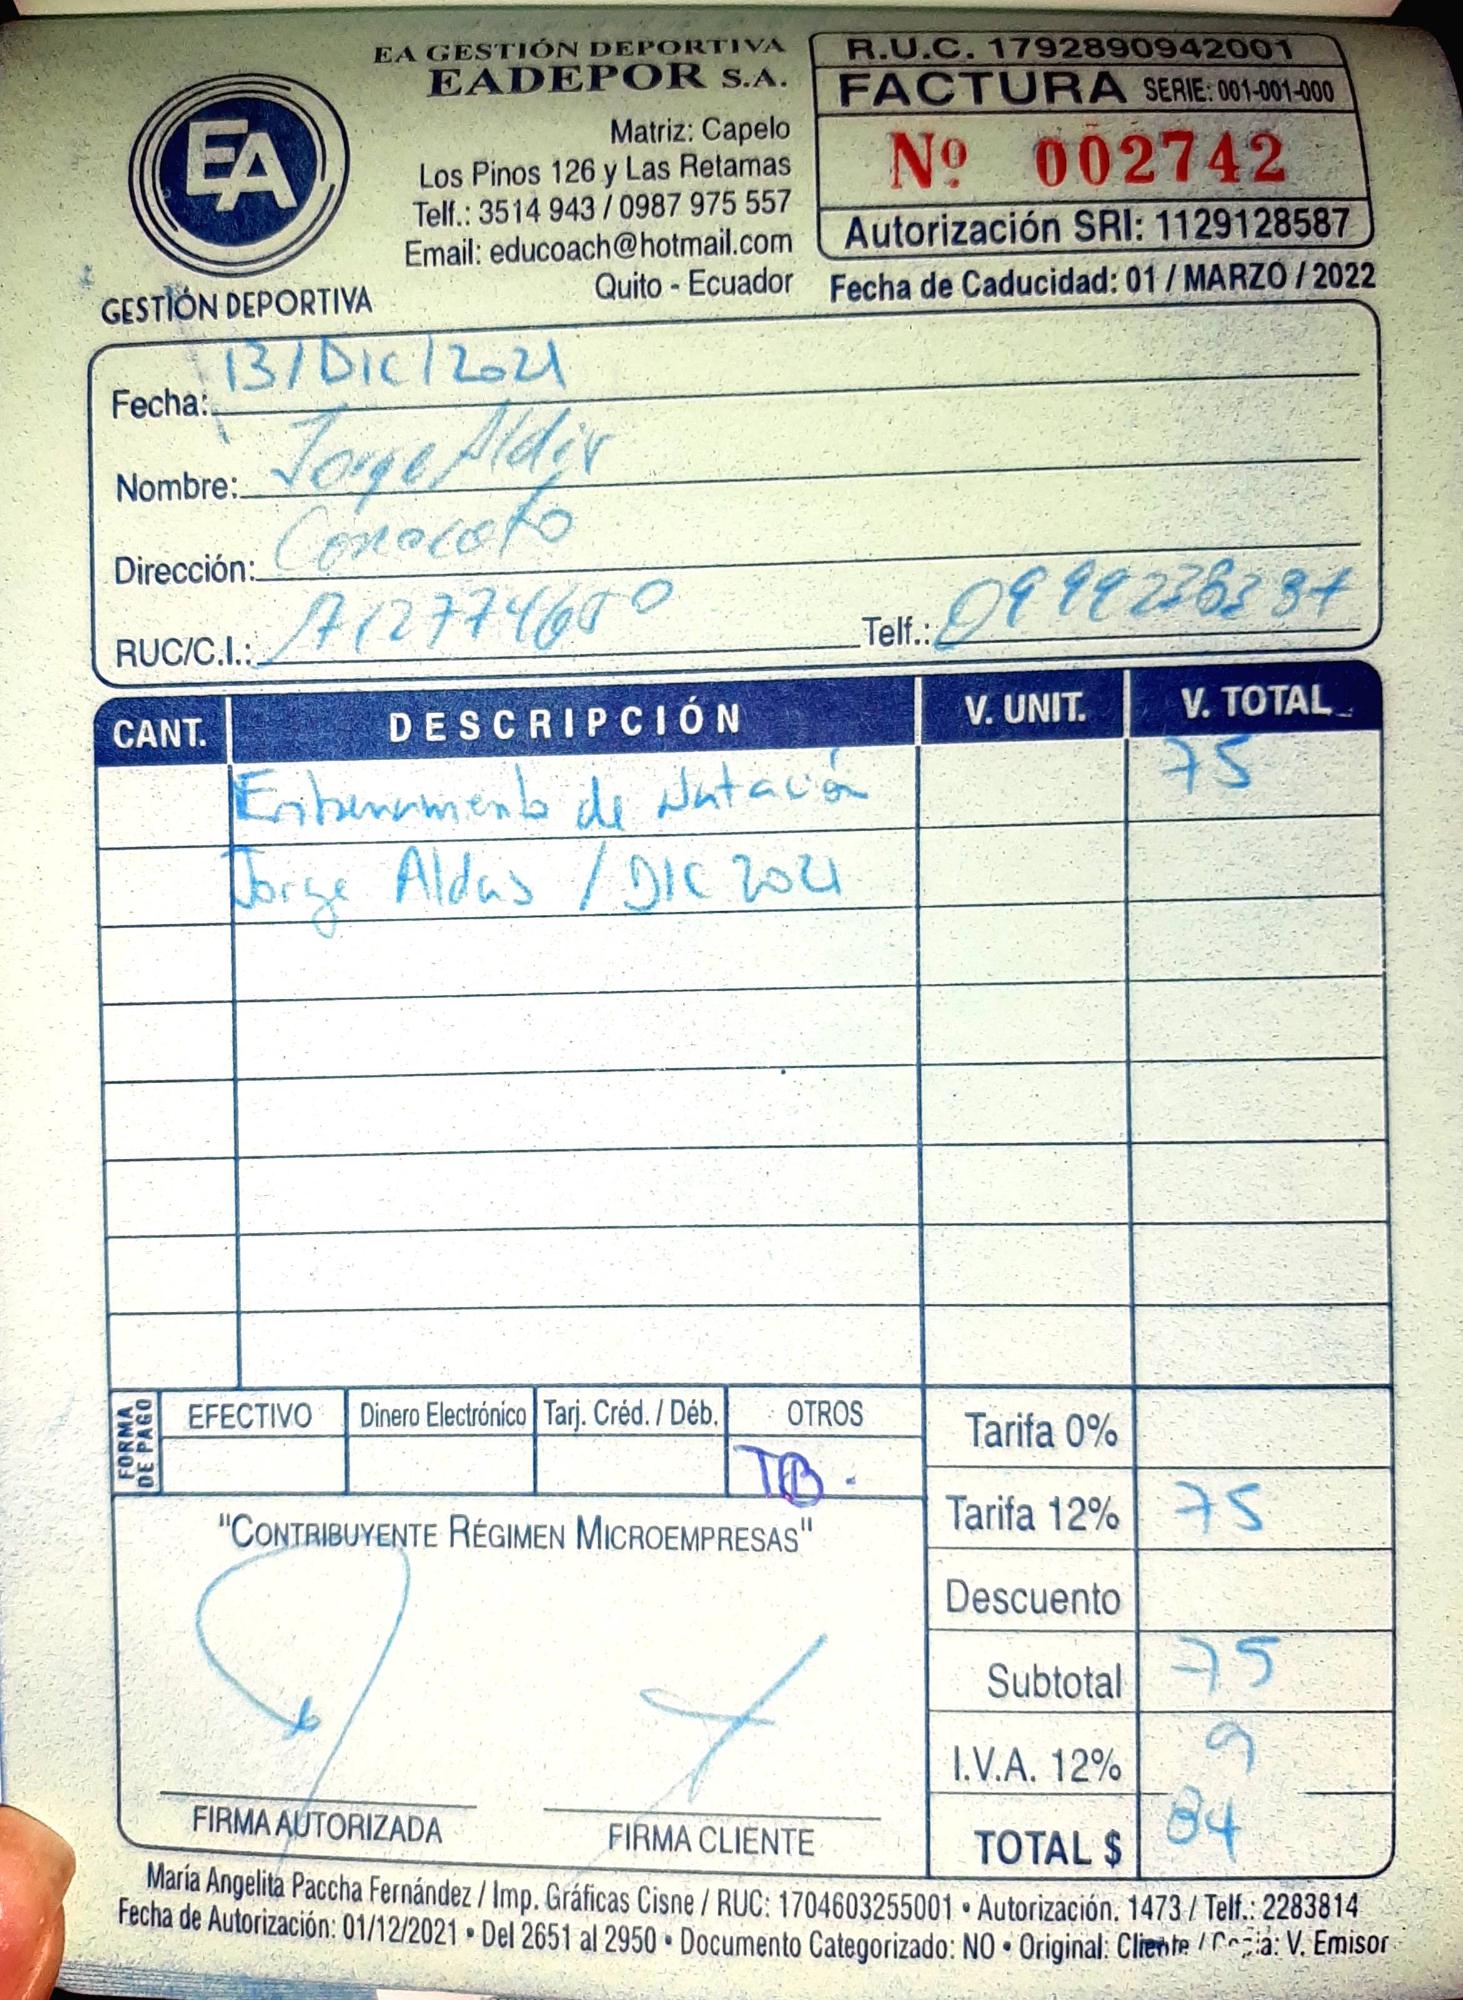 EA GESTIÓN DEPORTIVA
EADEPOR S.A.
Matriz: Capelo
Los Pinos 126 y Las Retamas
Telf.: 3514 943 / 0987 975 557
Email: educoach@hotmail.com
Quito - Ecuador
EA
GESTIÓN DEPORTIVA
R.U.C. 1792890942001
FACTURA SERIE: 001-001-000
Nº 002742
Autorización SRI: 1129128587
Fecha de Caducidad: 01 / MARZO / 2022
Fecha: 13/Dic/2021
Nombre: Jorge
Dirección: Conocoto
RUC/C.I.: Telf.:
CANT. DESCRIPCIÓN V. UNIT. V. TOTAL
Entrenamiento de Natación 75
Jorge Aldas / DIC 2021
FORMA DE PAGO
EFECTIVO Dinero Electrónico Tarj. Créd. / Déb. OTROS
TB.
Tarifa 0%
Tarifa 12% 75
Descuento
Subtotal 75
I.V.A. 12% 9
TOTAL $ 84
"CONTRIBUYENTE RÉGIMEN MICROEMPRESAS"
FIRMA AUTORIZADA FIRMA CLIENTE
María Angelita Paccha Fernández / Imp. Gráficas Cisne / RUC: 1704603255001 • Autorización. 1473 / Telf.: 2283814
Fecha de Autorización: 01/12/2021 • Del 2651 al 2950 • Documento Categorizado: NO • Original: Cliente / Copia: V. Emisor